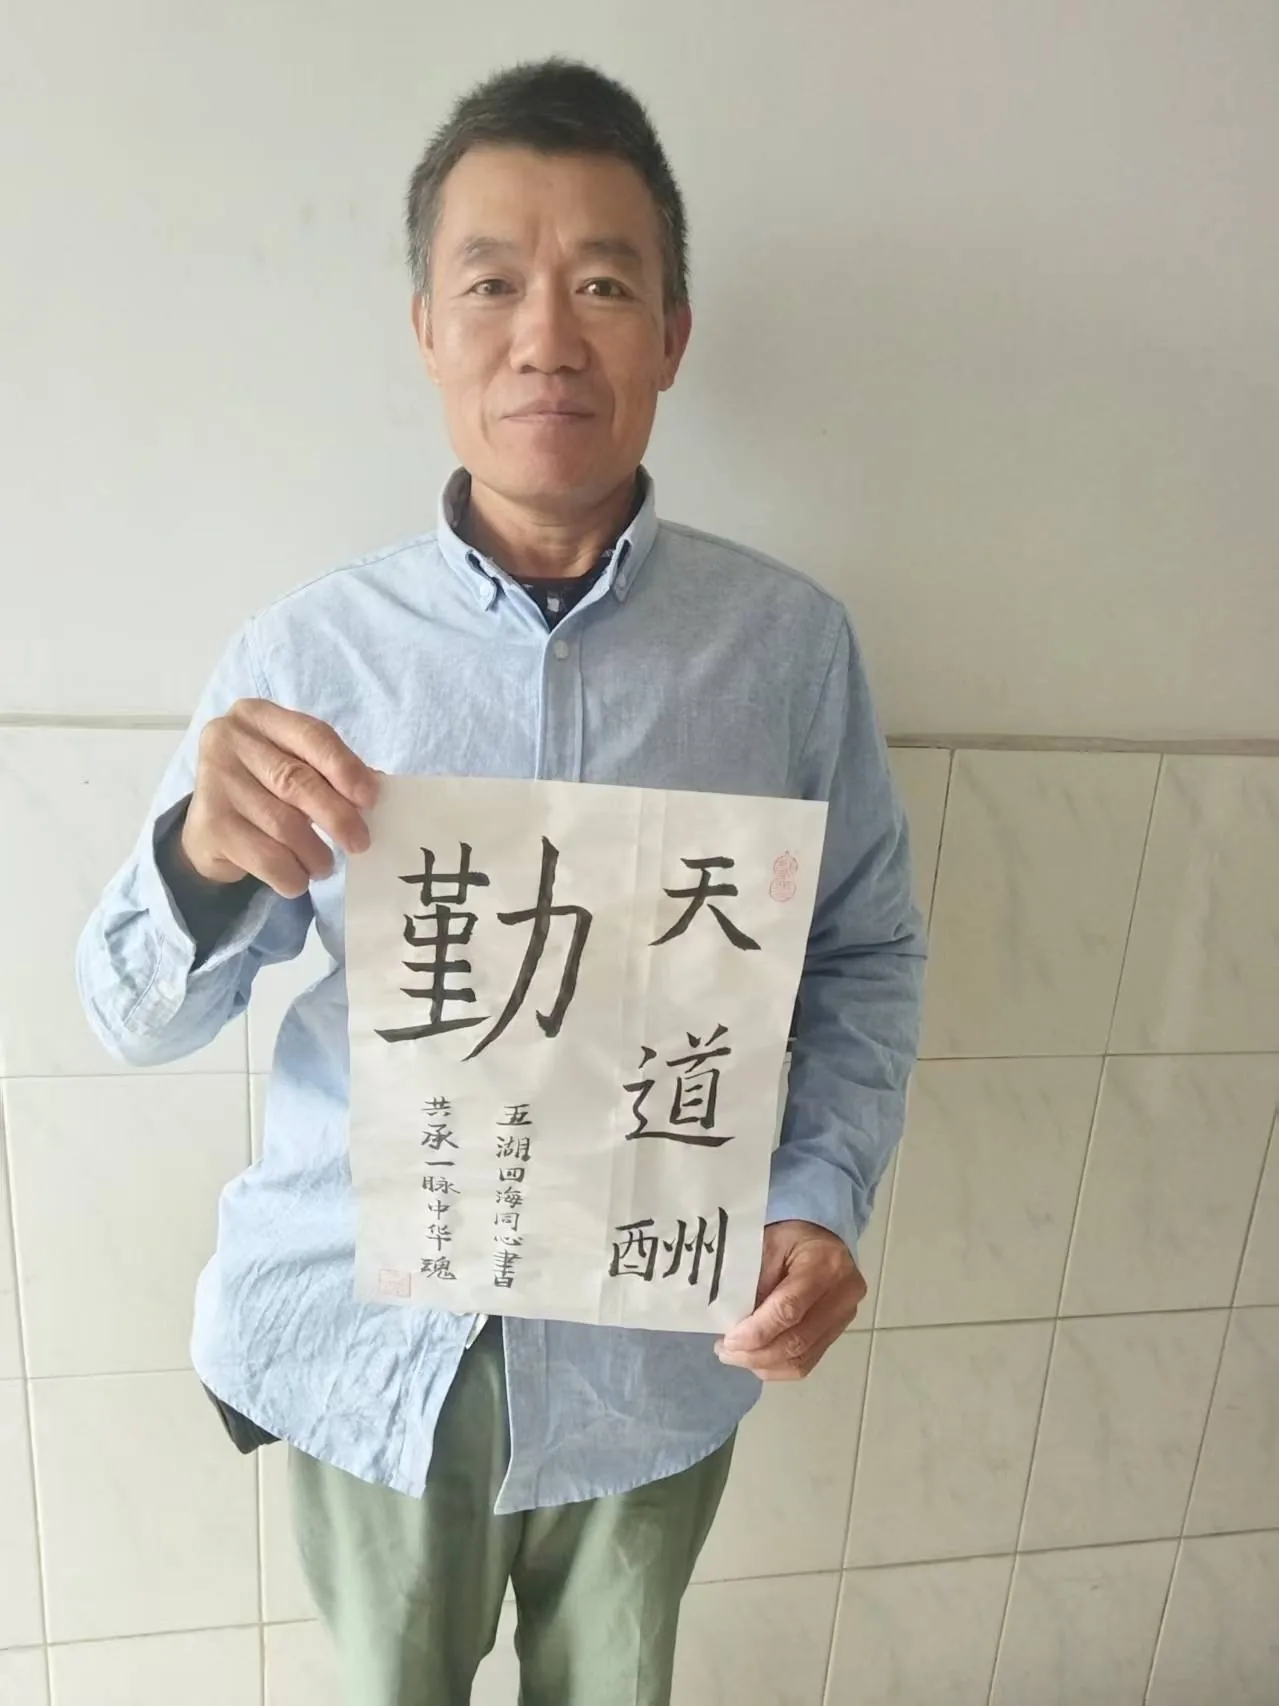 天道酬
勤
五湖四海同心書
共承一脉中华魂